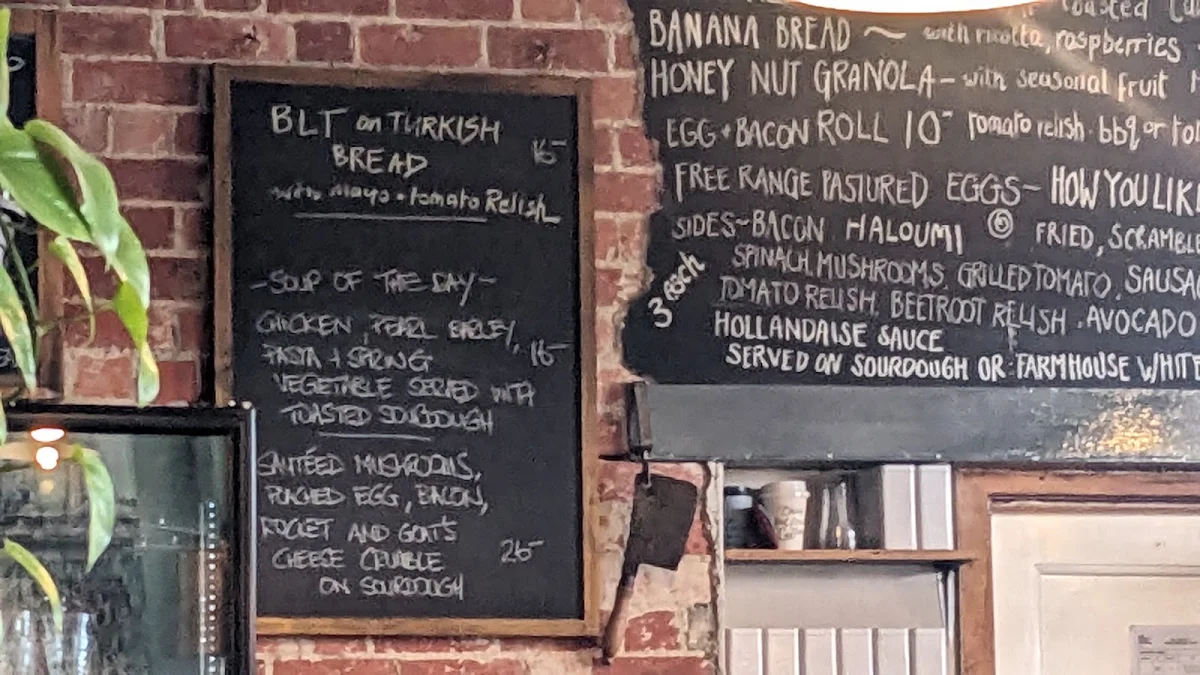 BLT on TURKISH
BREAD 16-
with mayo + tomato Relish
-SOUP OF THE DAY-
CHICKEN, PEARL BARLEY,
PASTA + SPRING 16-
VEGETABLE SERVED WITH
TOASTED SOURDOUGH
SAUTÉED MUSHROOMS,
POACHED EGG, BACON,
ROCKET AND GOATS
CHEESE CRUMBLE 26-
ON SOURDOUGH
BANANA BREAD ~ with ricotta, raspberries
HONEY NUT GRANOLA - with seasonal fruit
EGG + BACON ROLL 10- tomato relish · bbq or
FREE RANGE PASTURED EGGS - HOW YOU
SIDES - BACON HALOUMI FRIED,
3 each SPINACH, MUSHROOMS, GRILLED TOMATO,
TOMATO RELISH, BEETROOT RELISH, AVOCADO
HOLLANDAISE SAUCE
SERVED ON SOURDOUGH OR FARMHOUSE WHITE